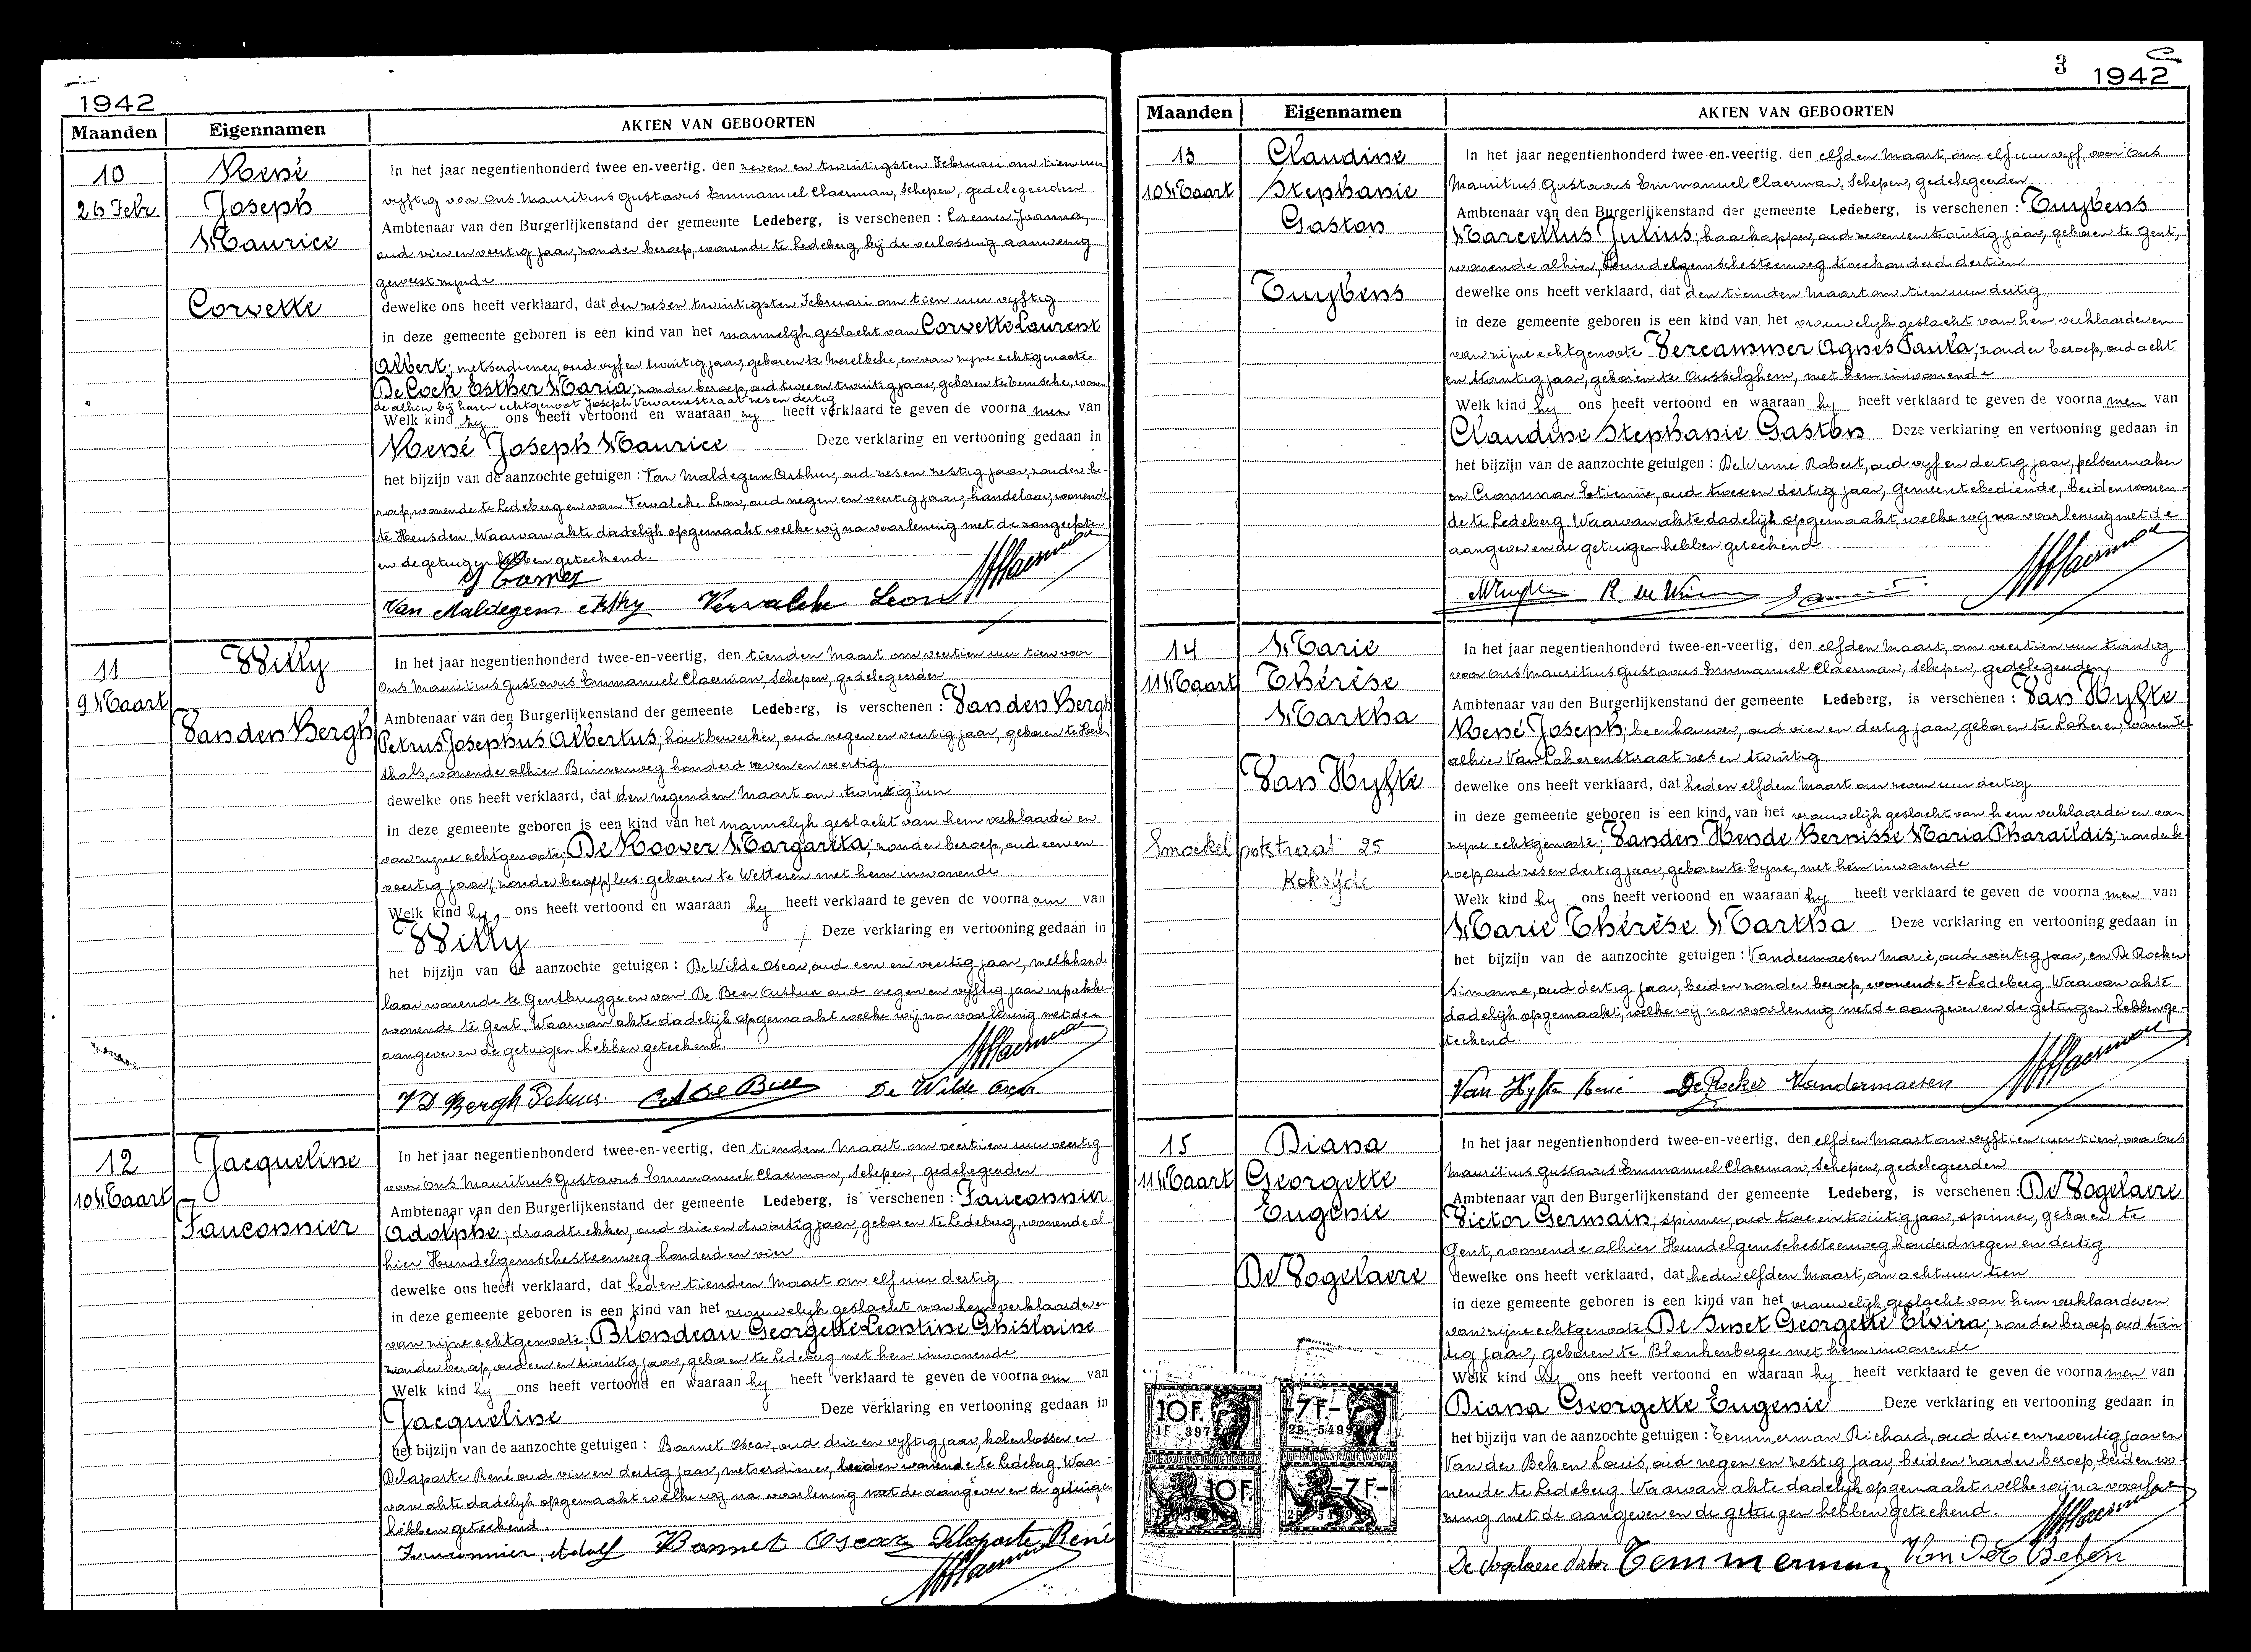 1942
Maanden Eigennamen AKTEN VAN GEBOORTEN
10 René
26 Febr. Joseph
Maurice
Corvette
In het jaar negentienhonderd twee en-veertig, den zeven en twintigsten Februari om tien uur
vyftig voor Ons Mauritius Gustavus Emmanuel Claerman, Schepen, gedelegeerden
Ambtenaar van den Burgerlijkenstand der gemeente Ledeberg, is verschenen : Joanna,
oud vier en veertig jaar, zonder beroep, wonende te Ledeberg, bij de verlossing aanwezig
geweest zynde
dewelke ons heeft verklaard, dat den zesen twintigsten Februari om tien uur vyftig
in deze gemeente geboren is een kind van het mannelyk geslacht van Corvette Laurent
Albert; metserdiener, oud vyf en twintig jaar, geboren te Merelbeke, en van zyne echtgenoote
De Cock Esther Maria; zonder beroep, oud twee en twintig jaar, geboren te Temsche, wonen
de alhier bij haren echtgenoot Joseph Vervaenestraat zes en dertig
Welk kind zy ons heeft vertoond en waaraan zy heeft verklaard te geven de voorna men van
René Joseph Maurice Deze verklaring en vertooning gedaan in
het bijzijn van de aanzochte getuigen : Van Maldegem Arthur, oud zes en zestig jaar, zonder be-
roep, wonende te Ledeberg en van Vervalcke Leon, oud negen en veertig jaar, handelaar, wonende
te Heusden. Waarvan akte dadelijk opgemaakt welke wij na voorlezing met de aangeefster
en de getuigen hebben geteekend.
Van Maldegem Vervalcke Leon
11 Willy
9 Maart
Van den Bergh
In het jaar negentienhonderd twee-en-veertig, den tienden Maart om veertien uur tien voor
Ons Mauritius Gustavus Emmanuel Claerman, Schepen, gedelegeerden
Ambtenaar van den Burgerlijkenstand der gemeente Ledeberg, is verschenen : Van den Bergh
Petrus Josephus Albertus; houtbewerker, oud negen en veertig jaar, geboren te Heren-
thals, wonende alhier Binnenweg honderd zeven en veertig.
dewelke ons heeft verklaard, dat den negenden Maart om twintig uur
in deze gemeente geboren is een kind van het mannelyk geslacht van hem verklaarder en
van zyne echtgenoote; De Roover Margarita; zonder beroep, oud een en
veertig jaar (zonder beroep) lees: geboren te Wetteren met hem inwonende
Welk kind hy ons heeft vertoond en waaraan hy heeft verklaard te geven de voorna am van
Willy Deze verklaring en vertooning gedaan in
het bijzijn van de aanzochte getuigen : De Wilde Oscar, oud een en veertig jaar, melkhande
laar wonende te Gentbrugge en van De Beer Arthur oud negen en vyftig jaar inpakker
wonende te Gent. Waarvan akte dadelijk opgemaakt welke wij na voorlezing met den
aangever en de getuigen hebben geteekend.
V D Bergh Petrus De Wilde Oscar
12 Jacqueline
10 Maart
Fauconnier
In het jaar negentienhonderd twee-en-veertig, den tienden Maart om veertien uur veertig
voor Ons Mauritius Gustavus Emmanuel Claerman, Schepen, gedelegeerden
Ambtenaar van den Burgerlijkenstand der gemeente Ledeberg, is verschenen : Fauconnier
Adolphe; draadtrekker, oud drie en twintig jaar, geboren te Ledeberg, wonende al
hier Hundelgemschesteenweg honderd en vier
dewelke ons heeft verklaard, dat heden tienden Maart om elf uur dertig
in deze gemeente geboren is een kind van het vrouwelyk geslacht van hem verklaarder en
van zyne echtgenoote; Blondeau Georgette Leontine Ghislaine
zonder beroep, oud een en twintig jaar, geboren te Ledeberg met hem inwonende
Welk kind hy ons heeft vertoond en waaraan hy heeft verklaard te geven de voorna am van
Jacqueline Deze verklaring en vertooning gedaan in
het bijzijn van de aanzochte getuigen : Bonnet Oscar, oud drie en vyftig jaar, kolenlosser en
Delaporte René oud vier en dertig jaar, metserdiener, beiden wonende te Ledeberg. Waar-
van akte dadelyk opgemaakt welke wij na voorlezing met de aangever en de getuigen
hebben geteekend.
Fauconnier Adolf Bonnet Oscar Delaporte René
3 1942
Maanden Eigennamen AKTEN VAN GEBOORTEN
13 Claudine
10 Maart Stephanie
Gaston
Tuybens
In het jaar negentienhonderd twee-en-veertig, den elfden Maart, om elf uur vyf, voor Ons
Mauritius Gustavus Emmanuel Claerman, Schepen, gedelegeerden
Ambtenaar van den Burgerlijkenstand der gemeente Ledeberg, is verschenen : Tuybens
Marcellus Julius; haarkapper, oud zeven en twintig jaar, geboren te Gent,
wonende alhier, Hundelgemschesteenweg tweehonderd dertien
dewelke ons heeft verklaard, dat den tienden Maart om tien uur dertig
in deze gemeente geboren is een kind van het vrouwelyk geslacht van hem verklaarder en
van zijne echtgenoote Vercammer Agnès Paula; zonder beroep, oud acht
en twintig jaar, geboren te Ousselghem, met hem inwonende
Welk kind hy ons heeft vertoond en waaraan hy heeft verklaard te geven de voorna men van
Claudine Stephanie Gaston Deze verklaring en vertooning gedaan in
het bijzijn van de aanzochte getuigen : De Winne Robert, oud vyf en dertig jaar, pelsenmaker
en Etienne, oud twee en dertig jaar, Gemeentebediende, beiden wonen-
de te Ledeberg. Waarvan akte dadelijk opgemaakt welke wij na voorlezing met de
aangever en de getuigen hebben geteekend
14 Marie
11 Maart Thérèse
Martha
Van Hyfte
Smoekelpotstraat 25
Koksijde
In het jaar negentienhonderd twee-en-veertig, den elfden Maart, om veertien uur twintig
voor Ons Mauritius Gustavus Emmanuel Claerman, Schepen, gedelegeerden
Ambtenaar van den Burgerlijkenstand der gemeente Ledeberg, is verschenen : Van Hyfte
René Joseph; beenhouwer, oud vier en dertig jaar, geboren te Lokeren, wonende
alhier Van Lokerenstraat zes en twintig
dewelke ons heeft verklaard, dat heden elfden Maart om zeven uur dertig
in deze gemeente geboren is een kind van het vrouwelyk geslacht van hem verklaarder en van
zyne echtgenoote; Van den Hende Bernisse Maria Pharaildis; zonder be-
roep, oud zes en dertig jaar, geboren te Eyne, met hem inwonende
Welk kind hy ons heeft vertoond en waaraan hy heeft verklaard te geven de voorna men van
Marie Thérèse Martha Deze verklaring en vertooning gedaan in
het bijzijn van de aanzochte getuigen : Vandermaesen Marie, oud veertig jaar, en De Rocker
Simonne, oud dertig jaar, beiden zonder beroep, wonende te Ledeberg Waarvan akte
dadelijk opgemaakt, welke wij na voorlezing met de aangever en de getuigen hebben ge-
teekend.
Van Hyfte René De Rocker Vandermaesen
15 Diana
11 Maart Georgette
Eugenie
De Vogelaere
In het jaar negentienhonderd twee-en-veertig, den elfden Maart om vyftien uur tien, voor Ons
Mauritius Gustavus Emmanuel Claerman, Schepen, gedelegeerden
Ambtenaar van den Burgerlijkenstand der gemeente Ledeberg, is verschenen : De Vogelaere
Victor Germain; spinner, oud twee en twintig jaar, spinner, geboren te
Gent, wonende alhier Hundelgemschesteenweg honderd negen en dertig
dewelke ons heeft verklaard, dat heden elfden Maart, om acht uur tien
in deze gemeente geboren is een kind van het vrouwelyk geslacht van hem verklaarder en
van zijne echtgenoote; De Smet Georgette Elvira; zonder beroep, oud twin
tig jaar, geboren te Blankenberge met hem inwonende
Welk kind hy ons heeft vertoond en waaraan hy heeft verklaard te geven de voorna men van
Diana Georgette Eugenie Deze verklaring en vertooning gedaan in
het bijzijn van de aanzochte getuigen : Temmerman Richard, oud drie en zeventig jaar en
Van der Beken Louis, oud negen en zestig jaar, beiden zonder beroep, beiden wo-
nende te Ledeberg. Waarvan akte dadelijk opgemaakt welke wij na voorle
zing met de aangever en de getuigen hebben geteekend.
De Vogelaere Victor Temmerman Van Der Beken
10F. 7F.-
10F. 7F.-